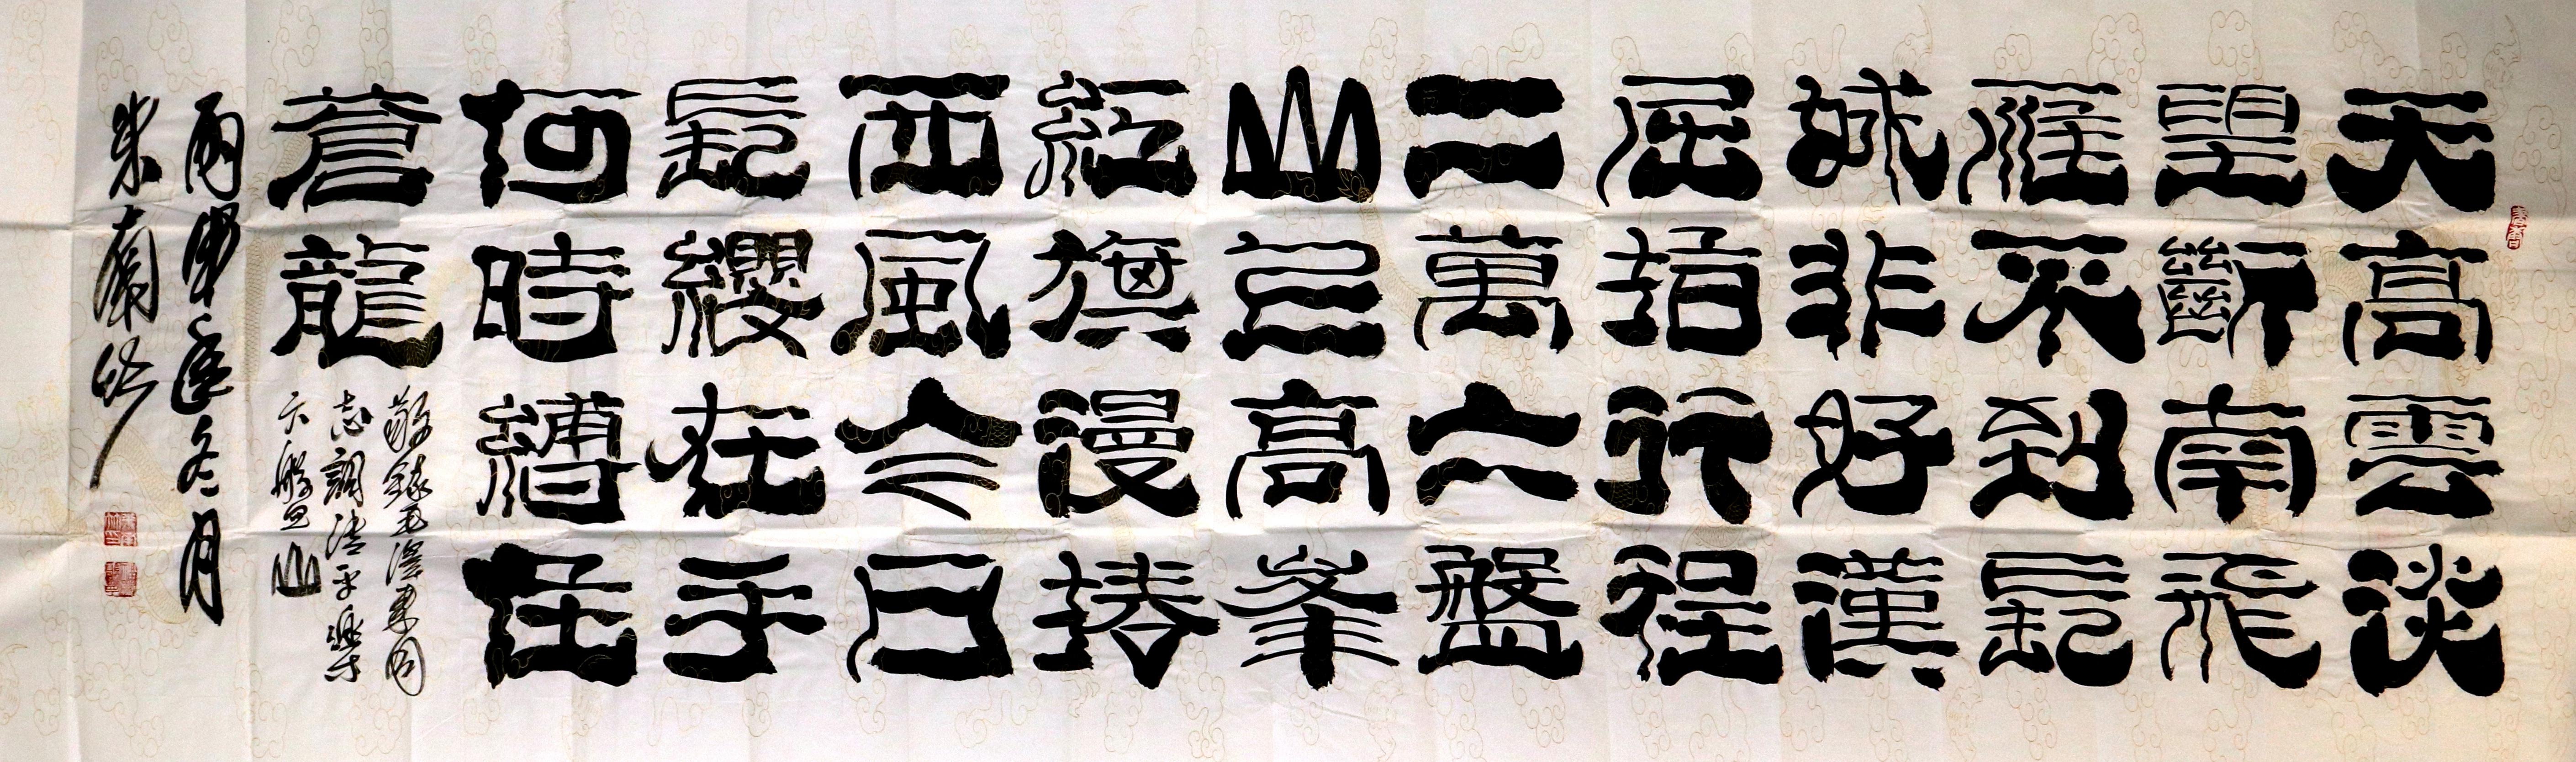 天高雲淡
望斷南飛
雁不到長
城非好漢
屈指行程
二萬六盤
山上高峯
紅旗漫捲
西風今日
長纓在手
何時縛住
蒼龍
敬錄毛澤東同
志詞清平樂
六盤山
丙申冬月
朱